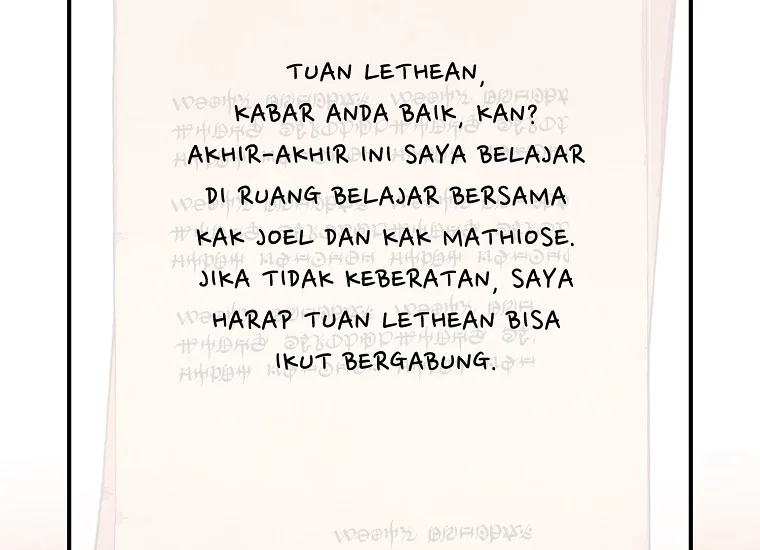 TUAN LETHEAN,
KABAR ANDA BAIK, KAN?
AKHIR-AKHIR INI SAYA BELAJAR
DI RUANG BELAJAR BERSAMA
KAK JOEL DAN KAK MATHIOSE.
JIKA TIDAK KEBERATAN, SAYA
HARAP TUAN LETHEAN BISA
IKUT BERGABUNG.